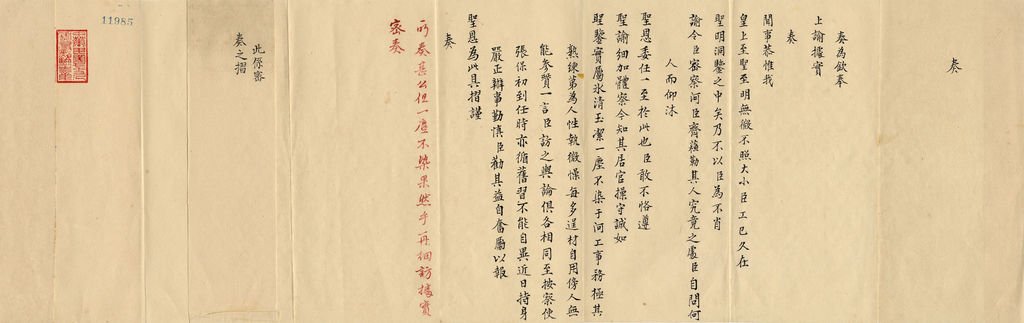 奏
奏為欽奉
上諭據實
奏
聞事恭惟我
皇上至聖至明無微不照大小臣工已久在
聖明洞鑒之中矣乃不以臣為不肖
諭令臣密察河臣齊蘇勒其人究竟之處臣自問何
人而仰沐
聖恩委任一至於此也臣敢不恪遵
聖諭細加體察今知其居官操守誠如
聖鑒實屬氷清玉潔一塵不染于河工事務極其
熟練第為人性執微慄每多逞材自用傍人無
能參贊一言臣訪之輿論俱各相同至按察使
張保初到任時亦循舊習不能自異近日持身
嚴正辦事勤慎臣勸其益自奮勵以報
聖恩為此具摺謹
奏
所奏甚公但一塵不染果然乎再細訪據實
密奏
此係密
奏之摺
11985